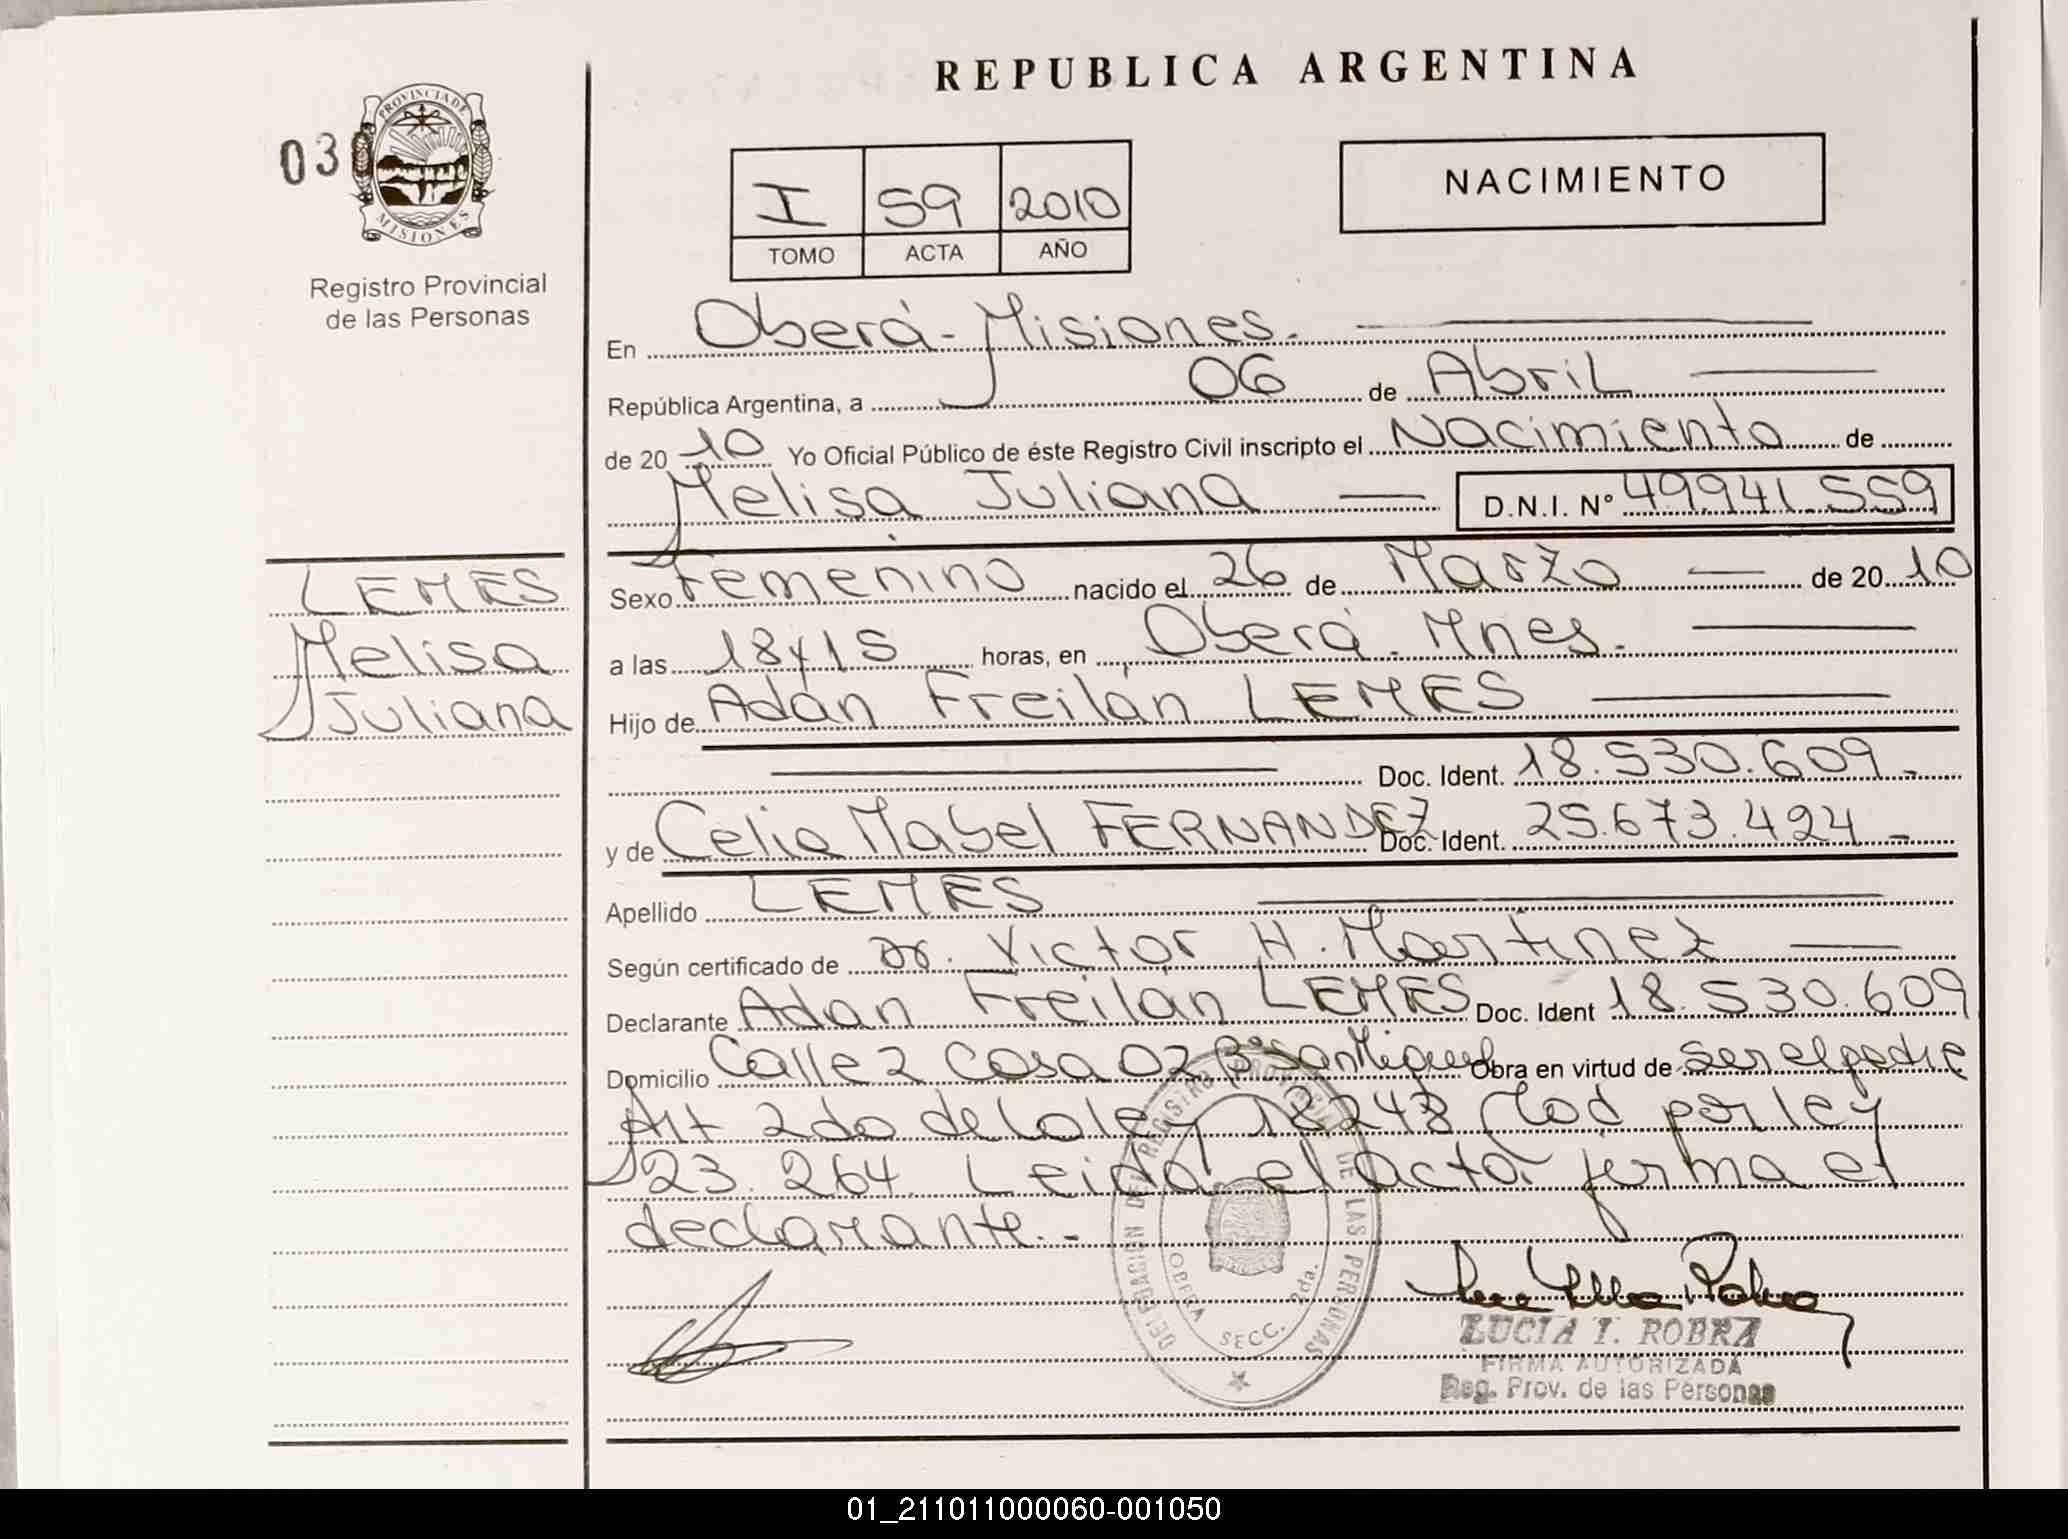 REPUBLICA ARGENTINA
03
PROVINCIA DE
MISIONES
Registro Provincial
de las Personas
I 59 2010
TOMO ACTA AÑO
NACIMIENTO
En Oberá - Misiones.
República Argentina, a 06 de Abril
de 20 10 Yo Oficial Público de éste Registro Civil inscripto el Nacimiento de
Melisa Juliana D.N.I. N° 49.941.559
LEMES
Melisa
Juliana
Sexo Femenino nacido el 26 de Marzo de 20 10
a las 18 y 15 horas, en Oberá. Mnes.
Hijo de Adán Freilán LEMES
Doc. Ident. 18.530.609.
y de Celia Mabel FERNANDEZ Doc. Ident. 25.673.424
Apellido LEMES
Según certificado de Dr. Victor H. Martinez
Declarante Adan Freilán LEMES Doc. Ident 18.530.609
Domicilio Calle 2 Casa 02 B° San Miguel Obra en virtud de ser el padre
Art 2do de la ley 18248 Mod por ley
23.264. Leida el acta firma el
declarante.-
DELEGACION DEL REGISTRO PROVINCIAL DE LAS PERSONAS
OBERA SECC. 2da.
LUCIA I. ROBRA
FIRMA AUTORIZADA
Reg. Prov. de las Personas
01_211011000060-001050